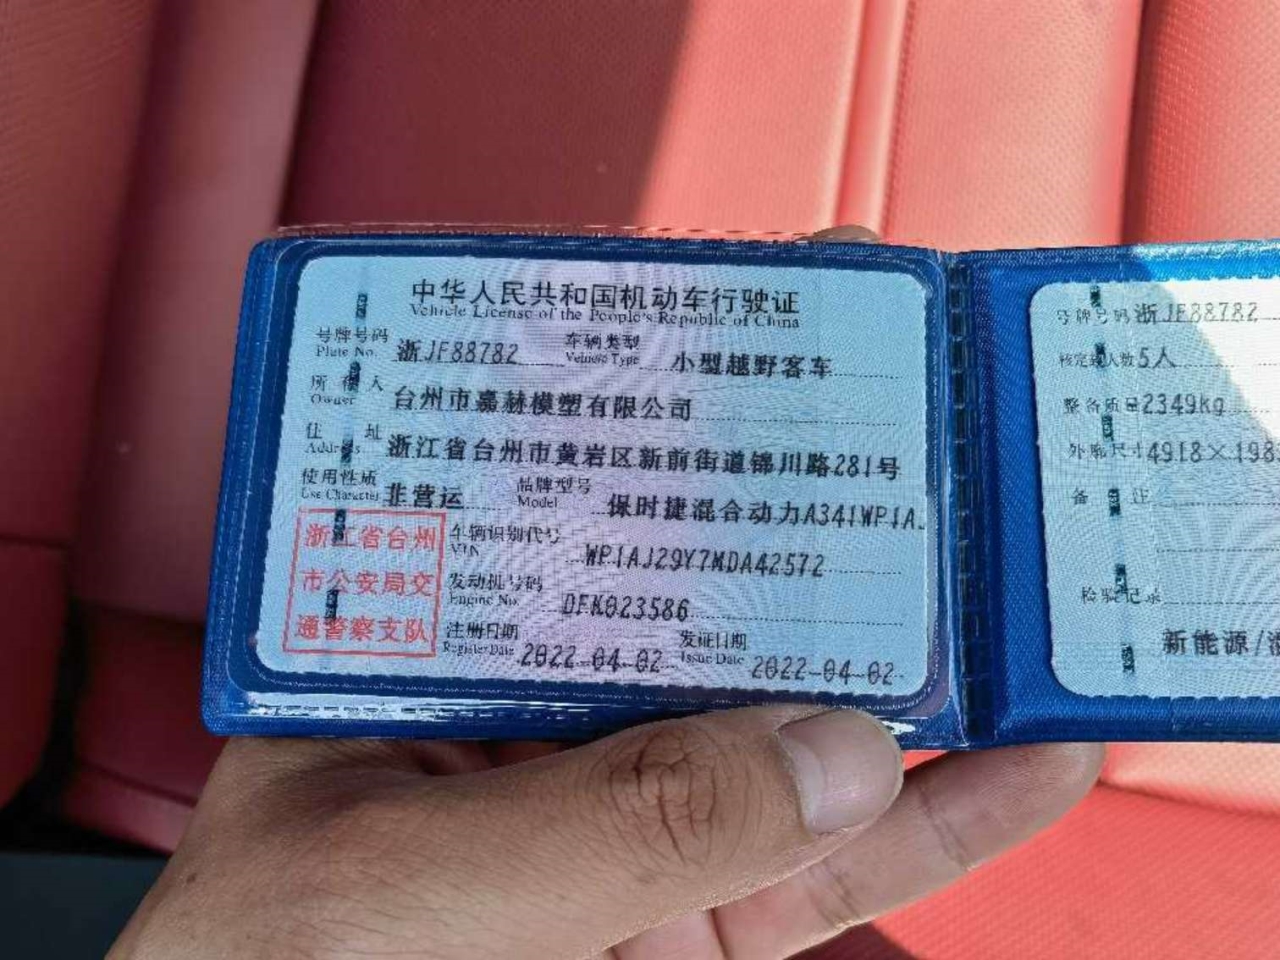 中华人民共和国机动车行驶证
Vehicle License of the People's Republic of China
号牌号码 浙JF88782 车辆类型 小型越野客车
Plate No. Vehicle Type
所有人 台州市嘉赫模塑有限公司
Owner
住址 浙江省台州市黄岩区新前街道锦川路281号
Address
使用性质 非营运 品牌型号 保时捷混合动力A341WP1A
Use Character Model
浙江省台州
市公安局交
通警察支队
车辆识别代号 WP1AJ29Y7MDA42572
VIN
发动机号码 DFK023586
Engine No.
注册日期 2022-04-02 发证日期 2022-04-02
Register Date Issue Date
号牌号码 浙JF88782
核定载人数 5人
整备质量 2349kg
外廓尺寸 4918×198
备注
检验记录
新能源/